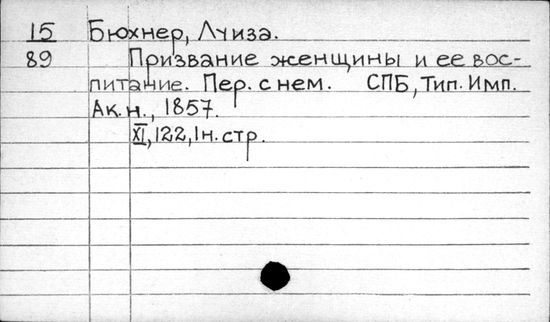 15 Бюхнер, Луиза.
89 Призвание женщины и ее вос-
питание. Пер. с нем. СПБ, Тип. Имп.
Ак. н., 1857.
XI, 122, 1 н. стр.